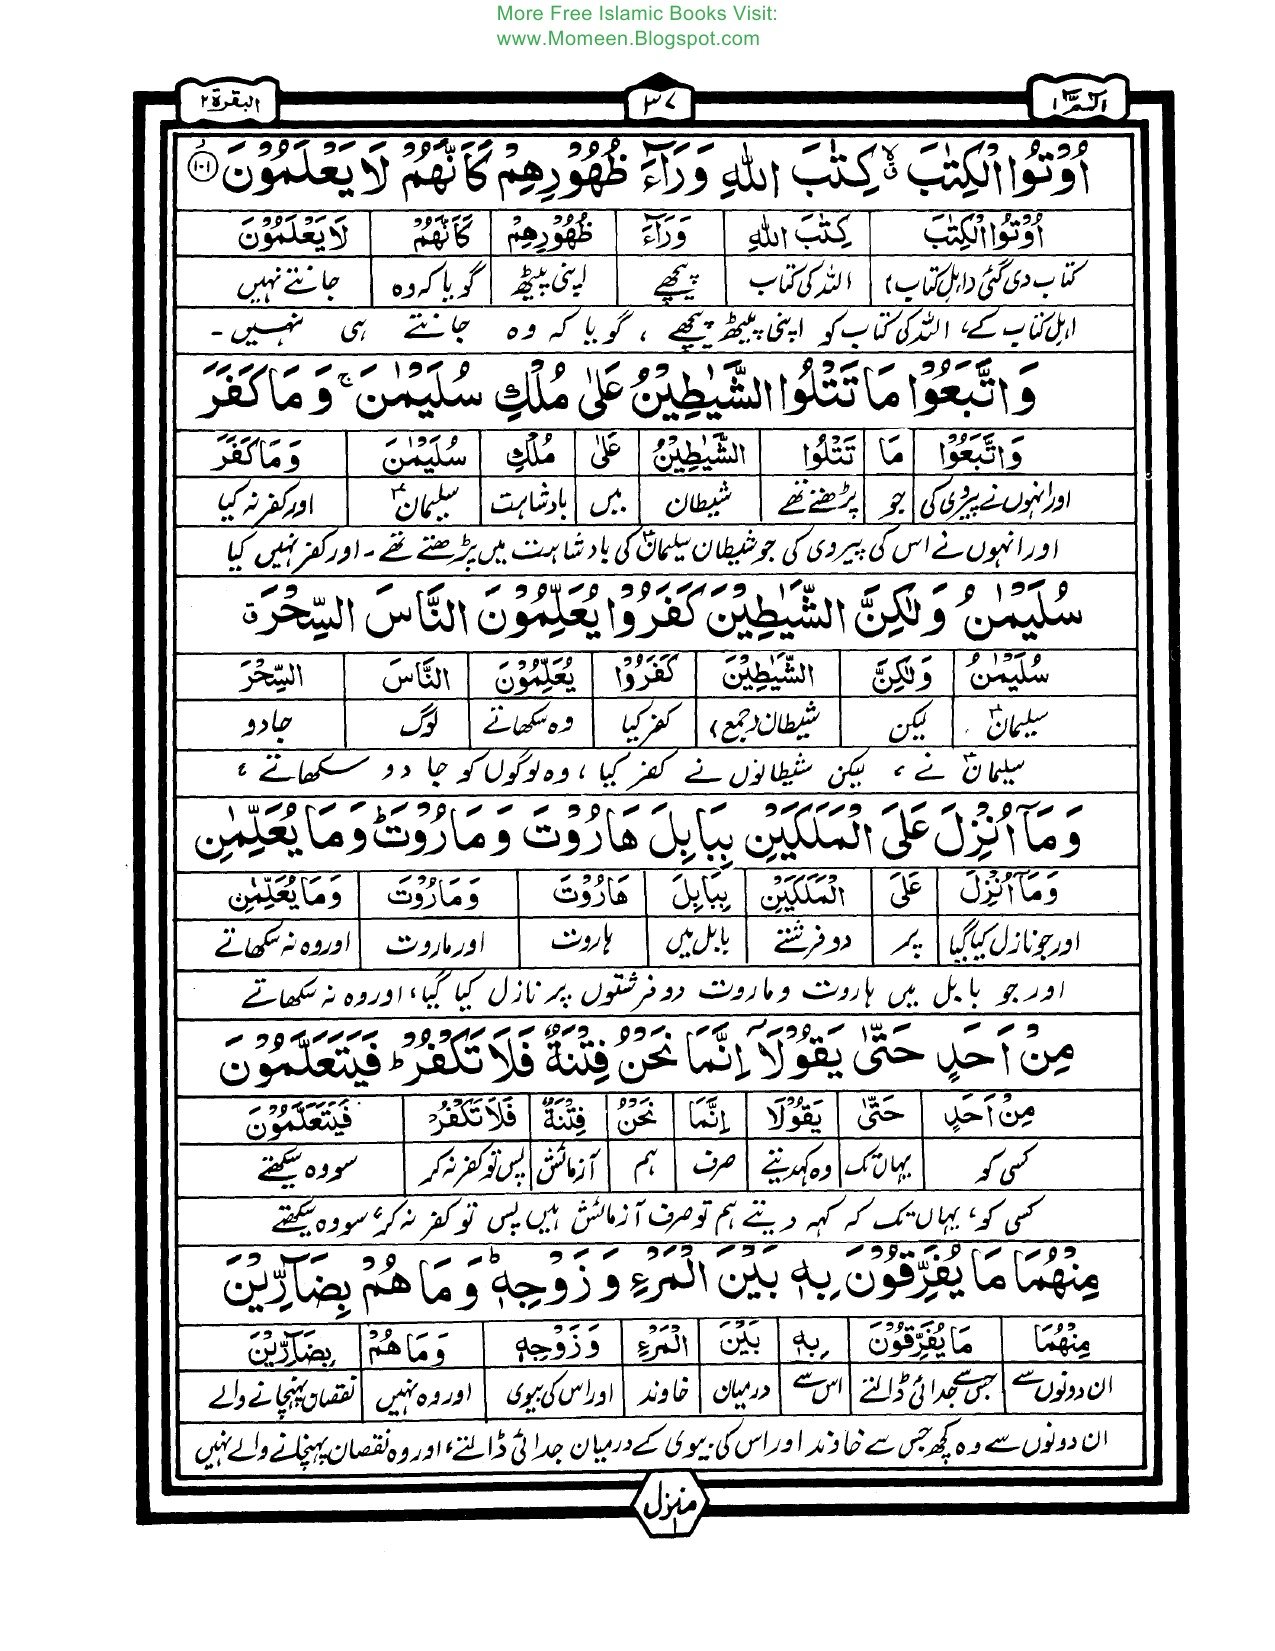 More Free Islamic Books Visit:
www.Momeen.Blogspot.com
الٓمّٓ ١
٣٧
البقرة ٢
اُوْتُوا الْكِتٰبَ ۙ كِتٰبَ اللّٰهِ وَرَآءَ ظُهُوْرِهِمْ كَاَنَّهُمْ لَا يَعْلَمُوْنَ ﴿١٠١﴾
اُوْتُوا الْكِتٰبَ كِتٰبَ اللّٰهِ وَرَآءَ ظُهُوْرِهِمْ كَاَنَّهُمْ لَا يَعْلَمُوْنَ
کتاب دی گئی (اہل کتاب) اللہ کی کتاب پیچھے اپنی پیٹھ گویا کہ وہ جانتے نہیں
اہل کتاب کے، اللہ کی کتاب کو اپنی پیٹھ پیچھے ، گویا کہ وہ جانتے ہی نہیں -
وَاتَّبَعُوْا مَا تَتْلُوا الشَّيٰطِيْنُ عَلٰى مُلْكِ سُلَيْمٰنَ ۚ وَمَا كَفَرَ
وَاتَّبَعُوْا مَا تَتْلُوا الشَّيٰطِيْنُ عَلٰى مُلْكِ سُلَيْمٰنَ وَمَا كَفَرَ
اور انہوں نے پیروی کی جو پڑھتے تھے شیطان میں بادشاہت سلیمانؑ اور کفر نہ کیا
اور انہوں نے اس کی پیروی کی جو شیطان سلیمانؑ کی بادشاہت میں پڑھتے تھے - اور کفر نہیں کیا
سُلَيْمٰنُ وَلٰكِنَّ الشَّيٰطِيْنَ كَفَرُوْا يُعَلِّمُوْنَ النَّاسَ السِّحْرَ ق
سُلَيْمٰنُ وَلٰكِنَّ الشَّيٰطِيْنَ كَفَرُوْا يُعَلِّمُوْنَ النَّاسَ السِّحْرَ
سلیمانؑ لیکن شیطان (جمع) کفر کیا وہ سکھاتے لوگ جادو
سلیمانؑ نے ، لیکن شیطانوں نے کفر کیا ، وہ لوگوں کو جادو سکھاتے ،
وَمَآ اُنْزِلَ عَلَى الْمَلَكَيْنِ بِبَابِلَ هَارُوْتَ وَمَارُوْتَ ؕ وَمَا يُعَلِّمٰنِ
وَمَآ اُنْزِلَ عَلَى الْمَلَكَيْنِ بِبَابِلَ هَارُوْتَ وَمَارُوْتَ وَمَا يُعَلِّمٰنِ
اور جو نازل کیا گیا پر دو فرشتے بابل میں ہاروت اور ماروت اور وہ نہ سکھاتے
اور جو بابل میں ہاروت و ماروت دو فرشتوں پر نازل کیا گیا، اور وہ نہ سکھاتے
مِنْ اَحَدٍ حَتّٰى يَقُوْلَآ اِنَّمَا نَحْنُ فِتْنَةٌ فَلَا تَكْفُرْ ؕ فَيَتَعَلَّمُوْنَ
مِنْ اَحَدٍ حَتّٰى يَقُوْلَا اِنَّمَا نَحْنُ فِتْنَةٌ فَلَا تَكْفُرْ فَيَتَعَلَّمُوْنَ
کسی کو یہاں تک وہ کہہ دیتے صرف ہم آزمائش پس تو کفر نہ کر سو وہ سیکھتے
کسی کو، یہاں تک کہ کہہ دیتے ہم تو صرف آزمائش ہیں پس تو کفر نہ کر، سو وہ سیکھتے
مِنْهُمَا مَا يُفَرِّقُوْنَ بِهٖ بَيْنَ الْمَرْءِ وَزَوْجِهٖ ؕ وَمَا هُمْ بِضَآرِّيْنَ
مِنْهُمَا مَا يُفَرِّقُوْنَ بِهٖ بَيْنَ الْمَرْءِ وَزَوْجِهٖ وَمَا هُمْ بِضَآرِّيْنَ
ان دونوں سے جس سے جدائی ڈالتے اس سے درمیان خاوند اور اس کی بیوی اور وہ نہیں نقصان پہنچانے والے
ان دونوں سے وہ کچھ جس سے خاوند اور اس کی بیوی کے درمیان جدائی ڈالتے، اور وہ نقصان پہنچانے والے نہیں
منزل ١